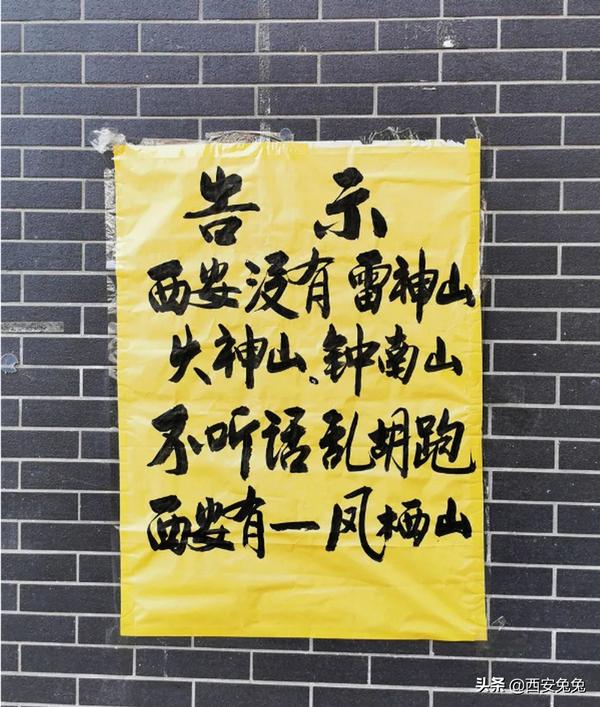 告示
西安没有雷神山
火神山、钟南山
不听话乱胡跑
西安有一凤栖山
头条 @西安兔兔